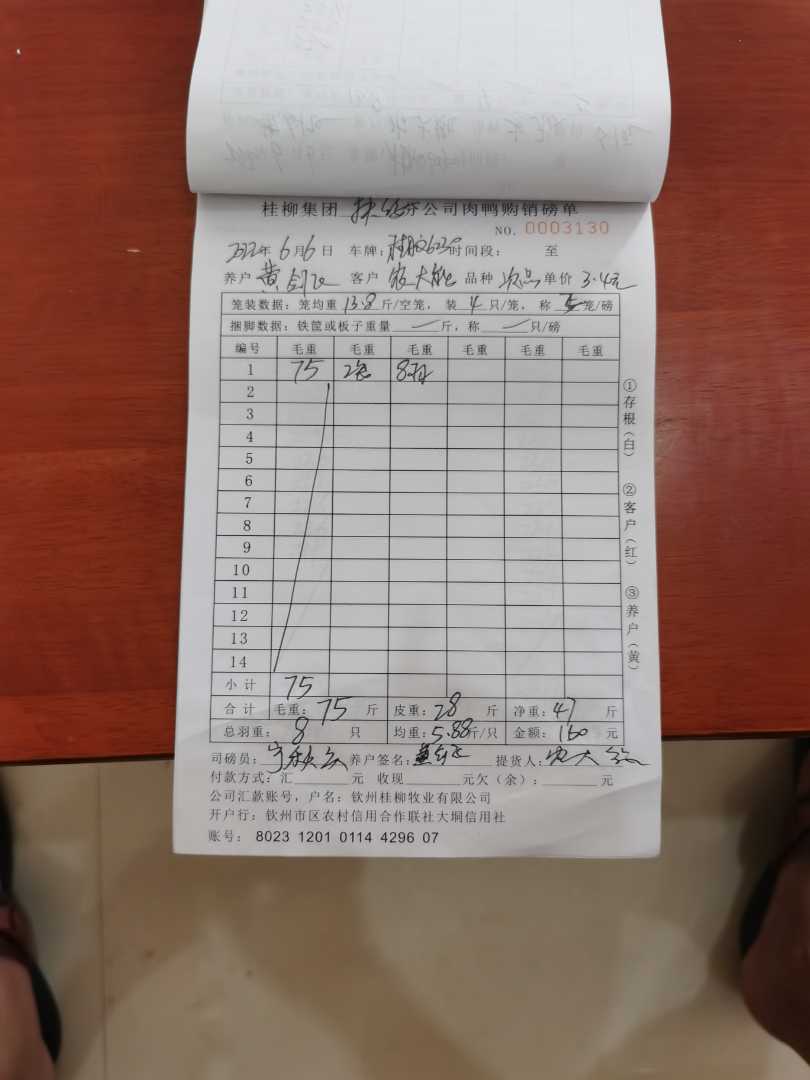 桂柳集团 分公司肉鸭购销磅单
NO. 0003130
2022年 6月 6日 车牌: 时间段: 至
养户 黄剑飞 客户 农大 品种 次品 单价 3.4元
笼装数据: 笼均重 13.8 斤/空笼, 装 4 只/笼, 称 笼/磅
捆脚数据: 铁筐或板子重量 — 斤, 称 — 只/磅
编号 毛重 毛重 毛重 毛重 毛重 毛重
1 75 2笼 8只
2
3
4
5
6
7
8
9
10
11
12
13
14
小计 75
合计 毛重: 75 斤 皮重: 28 斤 净重: 47 斤
总羽重: 8 只 均重: 5.88斤/只 金额: 160 元
司磅员: 养户签名: 黄剑飞 提货人: 农大
付款方式: 汇 元 收现 元欠(余): 元
公司汇款账号, 户名: 钦州桂柳牧业有限公司
开户行: 钦州市区农村信用合作联社大垌信用社
账号: 8023 1201 0114 4296 07
①存根(白) ②客户(红) ③养户(黄)